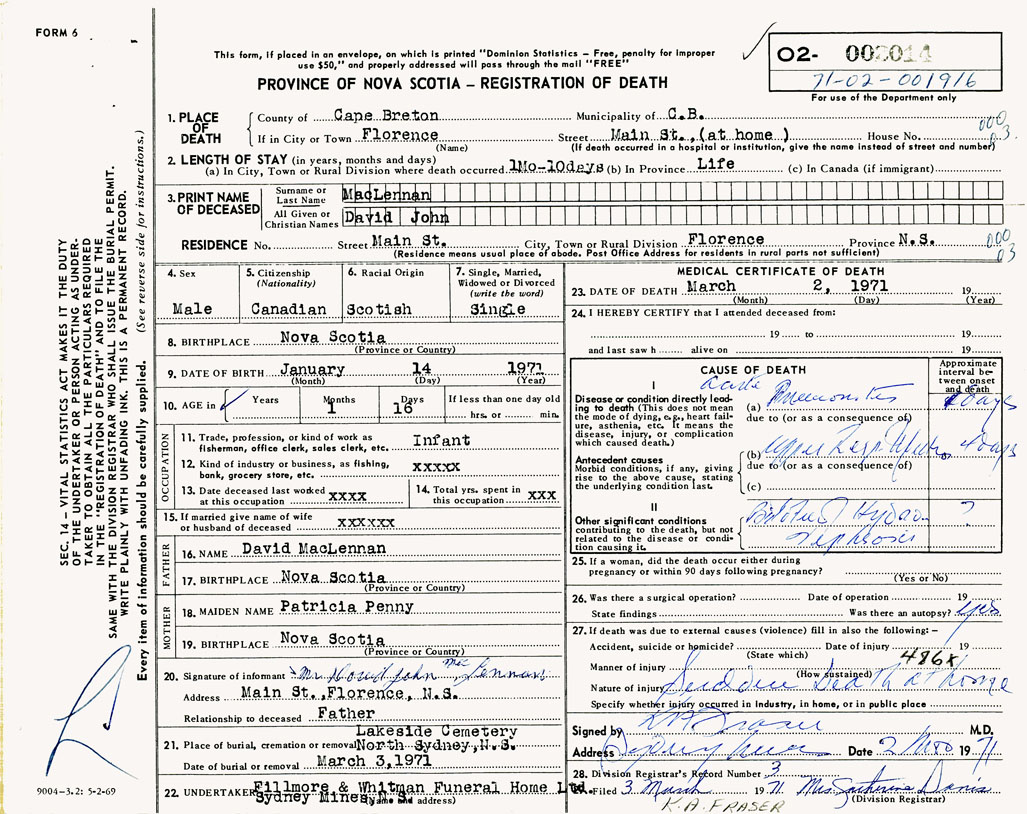 FORM 6
This form, if placed in an envelope, on which is printed "Dominion Statistics – Free, penalty for improper
use $50," and properly addressed will pass through the mail "FREE"
PROVINCE OF NOVA SCOTIA – REGISTRATION OF DEATH
02- 002014
71-02-001916
For use of the Department only
SEC. 14 – VITAL STATISTICS ACT MAKES IT THE DUTY
OF THE UNDERTAKER OR PERSON ACTING AS UNDER-
TAKER TO OBTAIN ALL THE PARTICULARS REQUIRED
IN THE "REGISTRATION OF DEATH" AND TO FILE THE
SAME WITH THE DIVISION REGISTRAR WHO SHALL ISSUE THE BURIAL PERMIT.
WRITE PLAINLY WITH UNFADING INK. THIS IS A PERMANENT RECORD.
Every item of information should be carefully supplied. (See reverse side for instructions.)
1. PLACE OF DEATH
County of Cape Breton Municipality of C.B.
If in City or Town Florence Street Main St., (at home ) House No. 000 03
(Name) (If death occurred in a hospital or institution, give the name instead of street and number)
2. LENGTH OF STAY (in years, months and days)
(a) In City, Town or Rural Division where death occurred 1Mo-10days (b) In Province Life (c) In Canada (if immigrant)
3. PRINT NAME OF DECEASED
Surname or Last Name MacLennan
All Given or Christian Names David John
RESIDENCE No. Street Main St. City, Town or Rural Division Florence Province N.S. 000 03
(Residence means usual place of abode. Post Office Address for residents in rural parts not sufficient)
4. Sex Male
5. Citizenship (Nationality) Canadian
6. Racial Origin Scotish
7. Single, Married, Widowed or Divorced (write the word) Single
8. BIRTHPLACE Nova Scotia
(Province or Country)
9. DATE OF BIRTH January 14 1971
(Month) (Day) (Year)
10. AGE in Years Months 1 Days 16 If less than one day old
hrs. or min.
OCCUPATION
11. Trade, profession, or kind of work as
fisherman, office clerk, sales clerk, etc. Infant
12. Kind of industry or business, as fishing,
bank, grocery store, etc. XXXXX
13. Date deceased last worked
at this occupation XXXX
14. Total yrs. spent in
this occupation XXX
15. If married give name of wife
or husband of deceased XXXXXX
FATHER
16. NAME David MacLennan
17. BIRTHPLACE Nova Scotia
(Province or Country)
MOTHER
18. MAIDEN NAME Patricia Penny
19. BIRTHPLACE Nova Scotia
(Province or Country)
20. Signature of informant Mr David John MacLennan
Address Main St.,Florence, N.S.
Relationship to deceased Father
21. Place of burial, cremation or removal Lakeside Cemetery
North Sydney,N.S.
Date of burial or removal March 3,1971
22. UNDERTAKER Fillmore & Whitman Funeral Home Ltd.
Sydney Mines,N.S.
(Name and address)
9004-3.2: 5-2-69
MEDICAL CERTIFICATE OF DEATH
23. DATE OF DEATH March 2, 1971 19
(Month) (Day) (Year)
24. I HEREBY CERTIFY that I attended deceased from:
19 to 19
and last saw h alive on 19
CAUSE OF DEATH
Approximate interval between onset and death
I
Disease or condition directly lead-
ing to death (This does not mean
the mode of dying, e.g., heart fail-
ure, asthenia, etc. It means the
disease, injury, or complication
which caused death.)
(a) Acute Pneumonitis days
due to (or as a consequence of)
Antecedent causes
Morbid conditions, if any, giving
rise to the above cause, stating
the underlying condition last.
(b) Upper Resp Infection days
due to (or as a consequence of)
(c)
II
Other significant conditions
contributing to the death, but not
related to the disease or condi-
tion causing it.
Bilateral Hydro- ?
nephrosis
25. If a woman, did the death occur either during
pregnancy or within 90 days following pregnancy?
(Yes or No)
26. Was there a surgical operation? Date of operation 19
State findings Was there an autopsy? Yes
27. If death was due to external causes (violence) fill in also the following:–
Accident, suicide or homicide? Date of injury 19
(State which) 486X
Manner of injury
(How sustained)
Nature of injury Sudden Death at home
Specify whether injury occurred in Industry, in home, or in public place
Signed by K A Fraser M.D.
Address Sydney Mines Date 2 Mar 1971
28. Division Registrar's Record Number 3
Filed 3 March 1971 Mrs. Catherine Davis
(Division Registrar)
K.A. FRASER